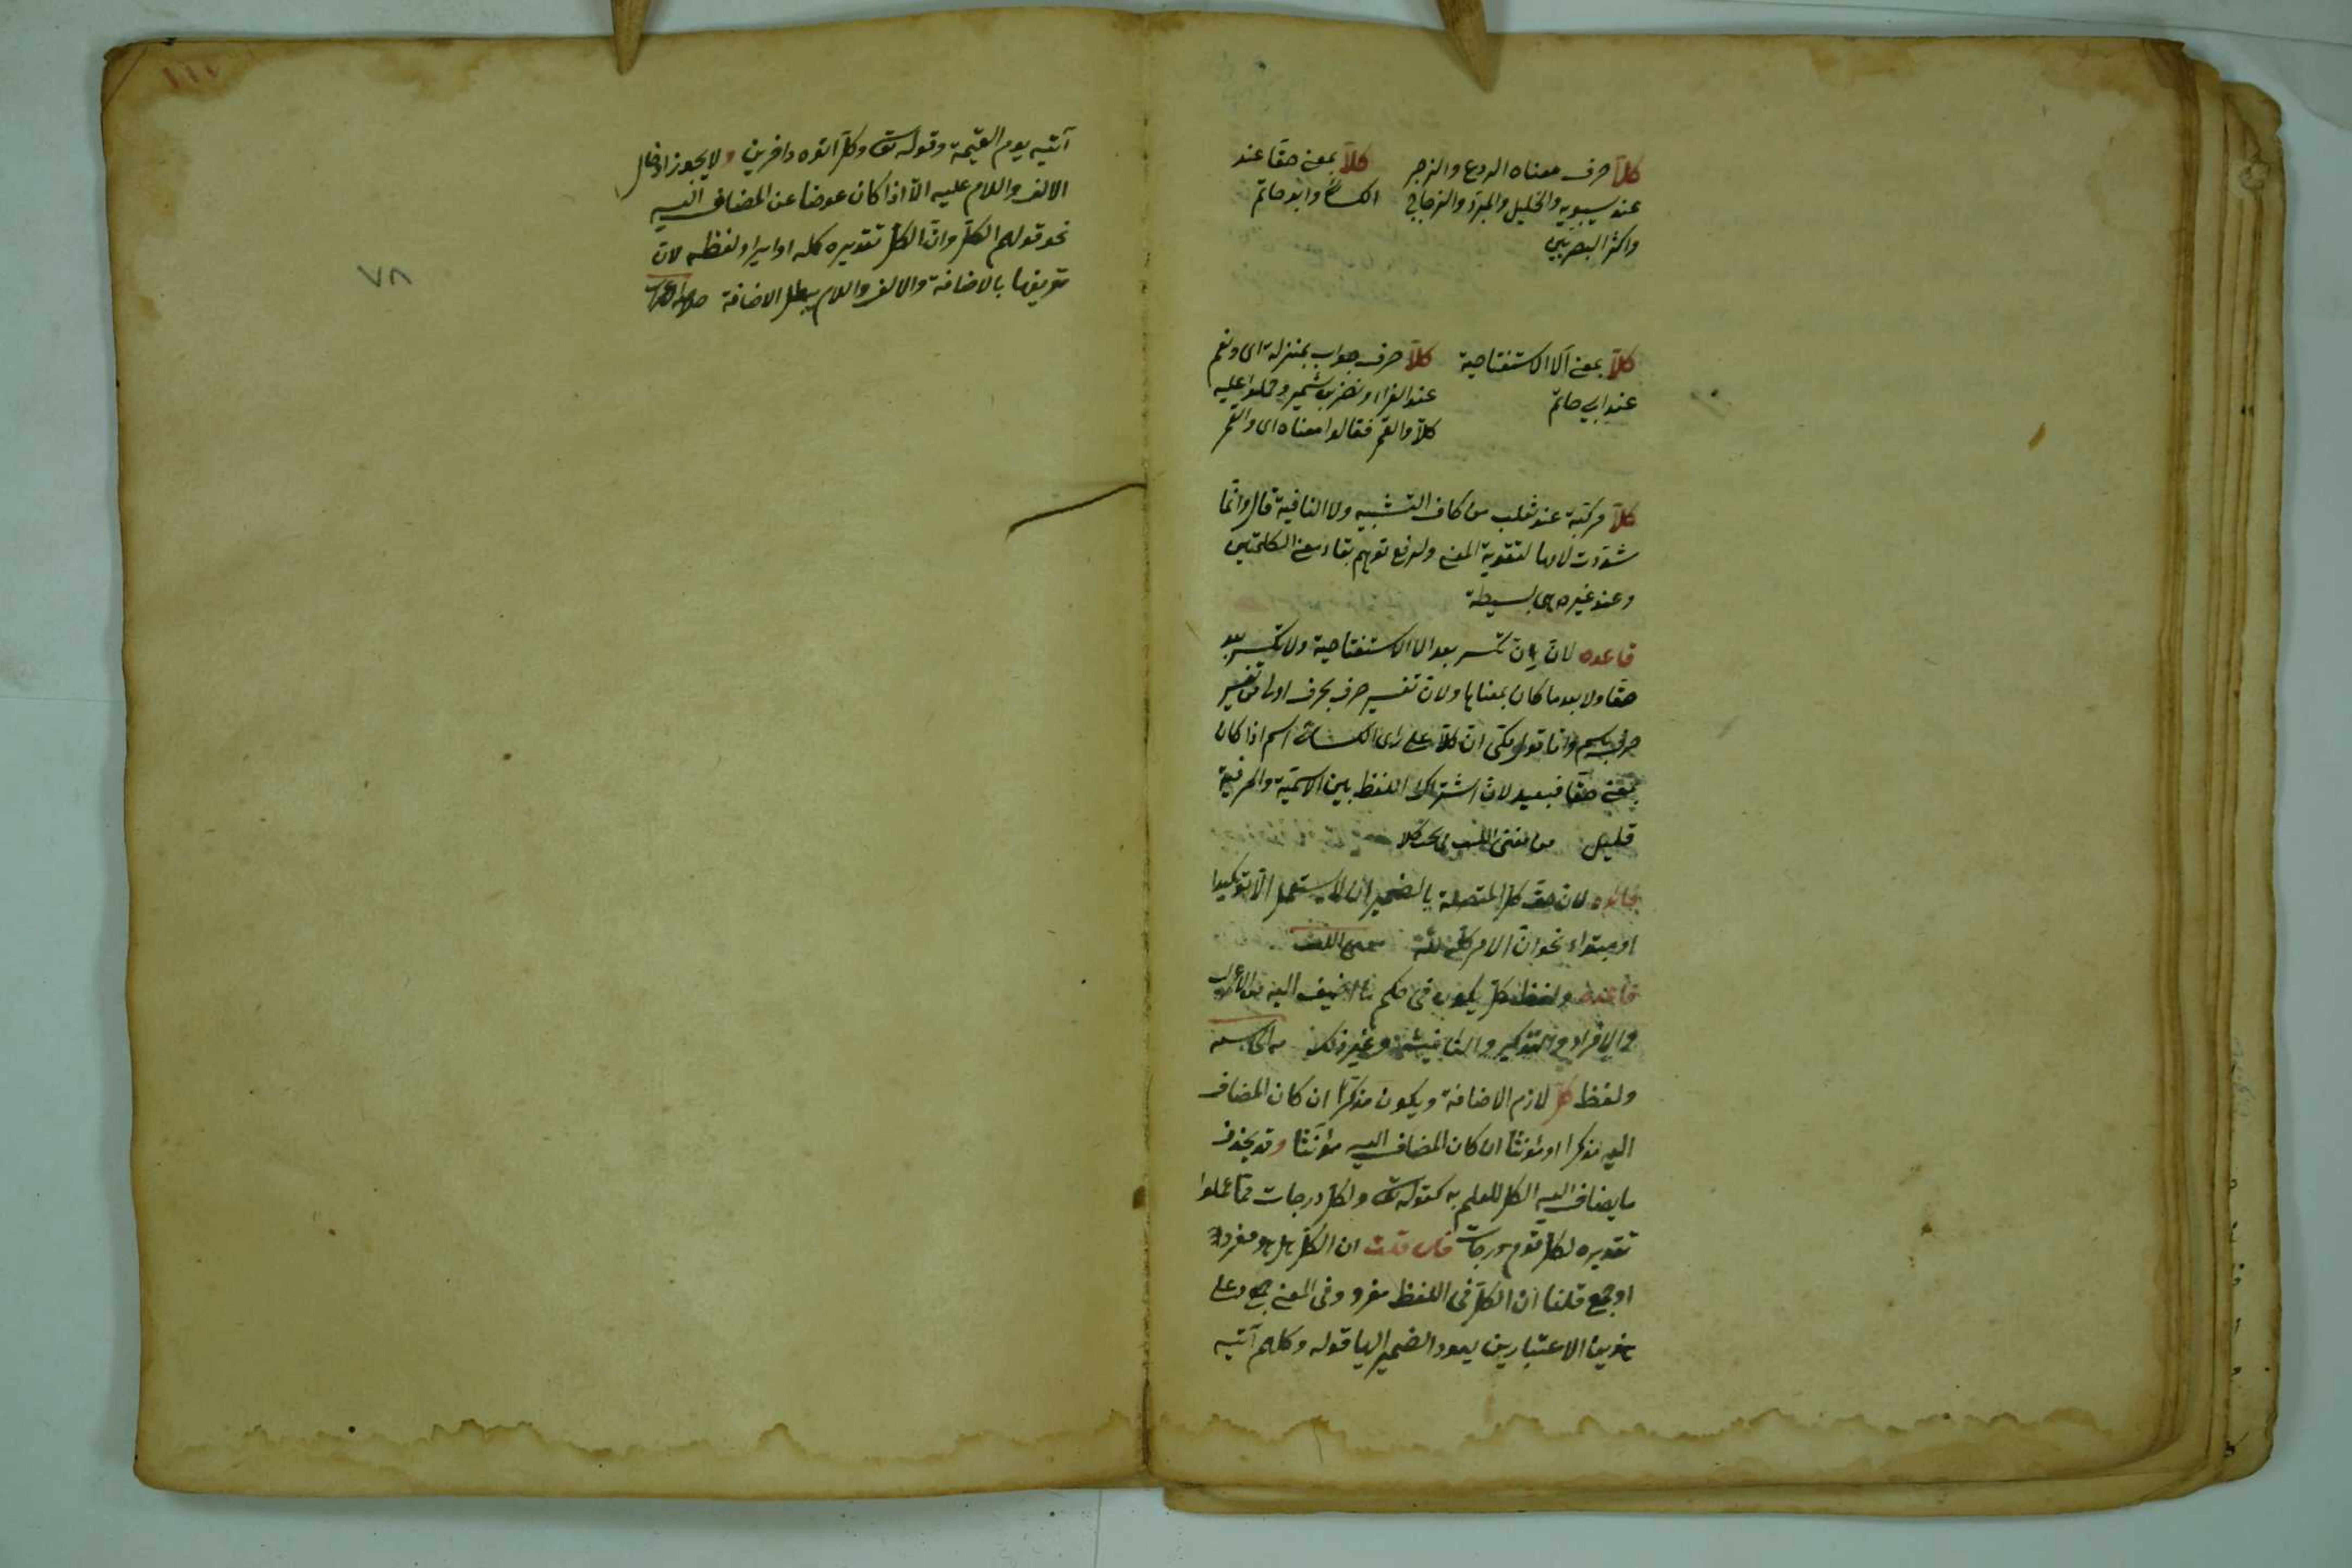 كلّا حرف معناه الردع والزجر
عند سيبويه والخليل والمبرّد والزجاجي
واكثر البصريين
كلّا بمعنى حقّا عند
الكسائي وابو حاتم
كلّا بمعنى آلا الاستفتاحية
عند ابي حاتم
كلّا حرف جواب بمنزلة اى ونعم
عند الفراء ونضر بن شمير وحملوا عليه
كلّا والقمر فقالوا معناه اى والقمر
كلّا مركبة عند ثعلب من كاف التشبيه ولا النافية قال وانّما
شدّدت لامها لتقوية المعنى ولدفع توهم بقاء معنى الكلمتين
وعند غيره هى بسيطة
قاعده لان إن تكسر بعد الا الاستفتاحية ولا تكسر بعد
حقّا ولا بعد ما كان بمعناها ولان تفسير حرف بحرف اولى من تفسير
حرف باسم وامّا قول مكى ان كلّا على راى الكسائى اسم اذا كان
بمعنى حقّا فبعيد لانّ اشتراك اللفظ بين الاسمية والحرفية
قليل من مغنى اللبيب فى بحث كلا
لان حقّ كل المتصلة بالضمير ان لا يستعمل الّا توكيدا
او مبتداء نحو انّ الامر كلّه لله
قاعده ولفظ كل يكون فى حكم ما اضيف اليه من
والافراد والتذكير والتانيث وغير ذلك
ولفظ كل لازم الاضافة ويكون مذكّرا ان كان المضاف
اليه مذكرا او مؤنثا ان كان المضاف اليه مؤنّثا وقد يحذف
ما يضاف اليه الكل للعلم به كقوله تعالى ولكل درجات ممّا عملوا
تقديره لكل قوم درجات فان قلت ان الكل هل هو مفرد
او جمع قلنا ان الكلّ فى اللفظ مفرد وفى المعنى جمع وعلى
هذين الاعتبارين يعود الضمير اليها قوله وكلهم آتيه
١١١
آتيه يوم القيمة وقوله تعالى وكلّ اتوه داخرين ولا يجوز ادخال
الالف واللام عليه الّا اذا كان عوضا عن المضاف اليه
نحو قولهم الكلّ وانّ الكل تقديره كله او لفظه لانّ
تعريفها بالاضافة والالف واللام يبطل الاضافة
٧٨